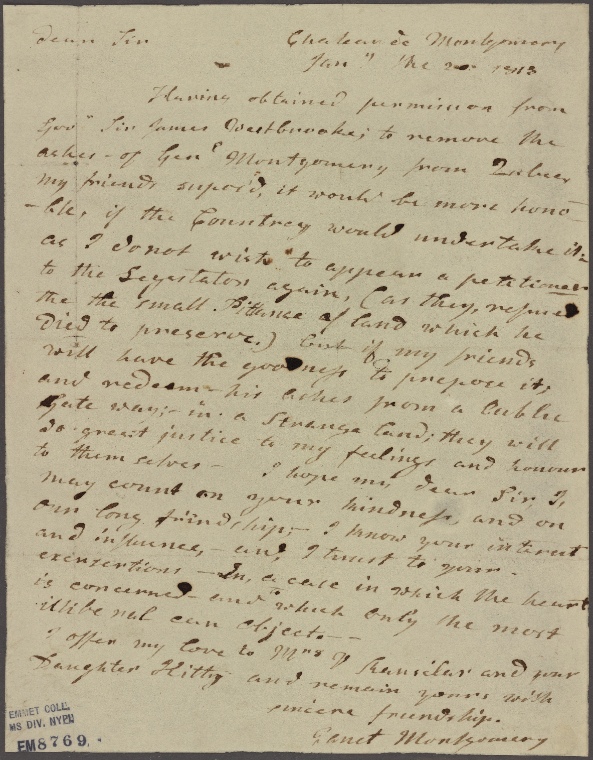 Dear Sir
Chateau de Montgomery
Jany the 20 1813
Having obtained permission from
Govr Sir James to remove the
ashes - of Genl Montgomery from Quebec,
my friends supos'd, it would be more hono-
-ble, if the Countrey would undertake it:
as I do not wish to appear a petitioner
to the Legestator again, (as they, refused
the the small Pittance of land which he
Died to preserve.) but if my friends
will have the goodness to prepose it,
and redeem - his ashes from a Publick
Gate way; - in a Strange land; they will
do great justice to my feelings and honour
to themselves - I hope my dear Sir, I,
may count on your kindness, and on
our long friendship; - I know your interest
and influence, - and, I trust to your -
exersertions - In, a case in which the heart
is concerned - and which only the most
illiberal can object. - -
I offer my love to Mrs and your
Daughter Kitty and remain yours with
sincere friendship.
Janet Montgomery
EMMET COLL.
MS DIV. NYPL
EM8769.